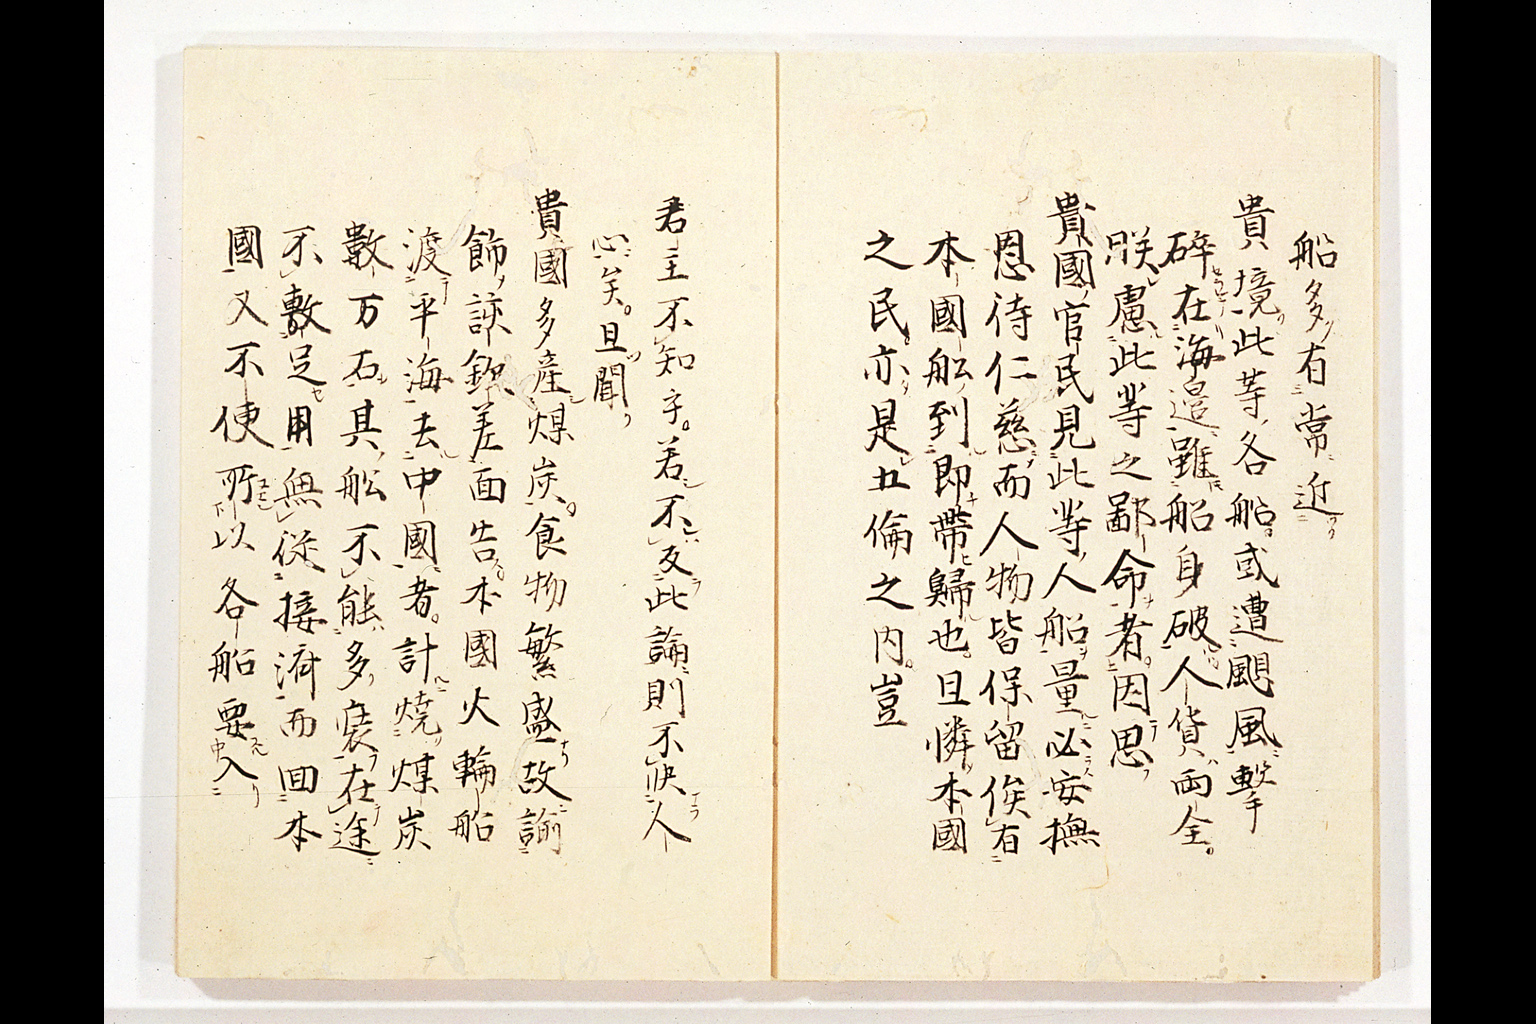 船多有常近
貴境此等各船或遭颶風撃
碎在海邉雖船身破人貨両全
朕慮此等之鄙命者因思
貴國官民見此等人船量必安撫
恩待仁慈而人物皆保留俟有
本國舩到即帶歸也且憐本國
之民亦是五倫之内豈
君主不知乎若不反此論則不快人
心矣且聞
貴國多産煤炭食物繁盛故諭
飾談欽差面告本國火輪船
渡平海去中國者計焼煤炭
數万石其舩不能多裝在途
不敷足用無從接濟而回本
國又不使所以各船要入